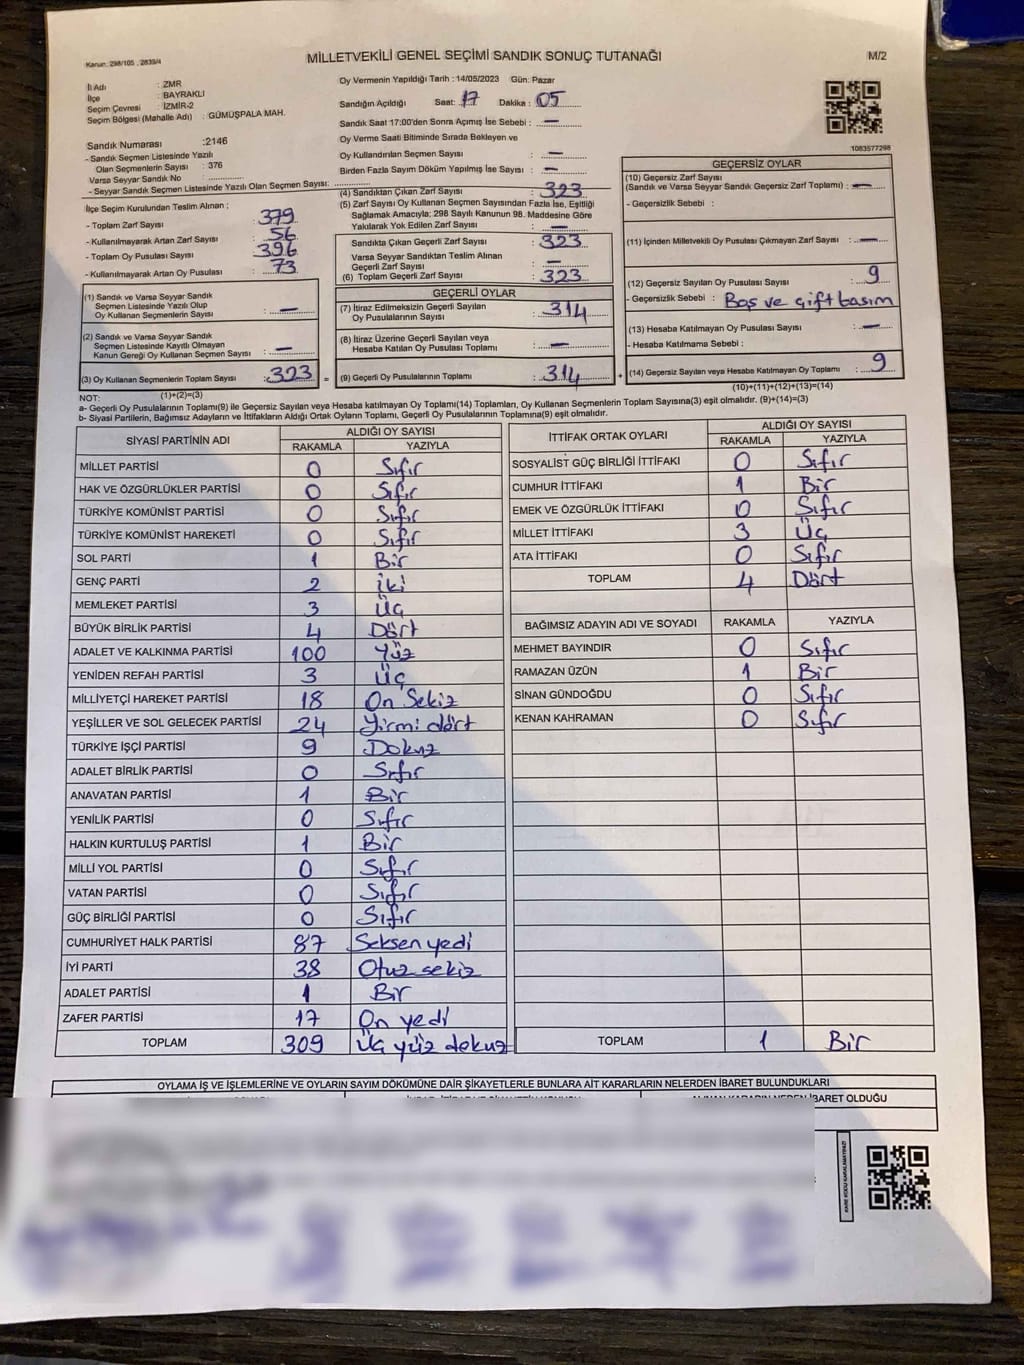 Kanun: 298/105 , 2839/4
MİLLETVEKİLİ GENEL SEÇİMİ SANDIK SONUÇ TUTANAĞI
M/2
İl Adı : ZMR
İlçe : BAYRAKLI
Seçim Çevresi : İZMİR-2
Seçim Bölgesi (Mahalle Adı) : GÜMÜŞPALA MAH.
Sandık Numarası :2146
- Sandık Seçmen Listesinde Yazılı
Olan Seçmenlerin Sayısı : 376
Varsa Seyyar Sandık No :
- Seyyar Sandık Seçmen Listesinde Yazılı Olan Seçmen Sayısı:
Oy Vermenin Yapıldığı Tarih : 14/05/2023 Gün: Pazar
Sandığın Açıldığı Saat: 17 Dakika : 05
Sandık Saat 17:00'den Sonra Açımış İse Sebebi : —
Oy Verme Saati Bitiminde Sırada Bekleyen ve
Oy Kullandırılan Seçmen Sayısı : —
Birden Fazla Sayım Döküm Yapılmış İse Sayısı : —
1083577298
İlçe Seçim Kurulundan Teslim Alınan ;
- Toplam Zarf Sayısı : 379
- Kullanılmayarak Artan Zarf Sayısı : 56
- Toplam Oy Pusulası Sayısı : 396
- Kullanılmayarak Artan Oy Pusulası : 73
(1) Sandık ve Varsa Seyyar Sandık
Seçmen Listesinde Yazılı Olup
Oy Kullanan Seçmenlerin Sayısı : —
(2) Sandık ve Varsa Seyyar Sandık
Seçmen Listesinde Kayıtlı Olmayan
Kanun Gereği Oy Kullanan Seçmen Sayısı : —
(3) Oy Kullanan Seçmenlerin Toplam Sayısı : 323 =
(1)+(2)=(3)
(4) Sandıktan Çıkan Zarf Sayısı : 323
(5) Zarf Sayısı Oy Kullanan Seçmen Sayısından Fazla İse, Eşitliği
Sağlamak Amacıyla; 298 Sayılı Kanunun 98. Maddesine Göre
Yakılarak Yok Edilen Zarf Sayısı : —
Sandıkta Çıkan Geçerli Zarf Sayısı : 323
Varsa Seyyar Sandıktan Teslim Alınan
Geçerli Zarf Sayısı : —
(6) Toplam Geçerli Zarf Sayısı : 323
GEÇERLİ OYLAR
(7) İtiraz Edilmeksizin Geçerli Sayılan
Oy Pusulalarının Sayısı : 314
(8) İtiraz Üzerine Geçerli Sayılan veya
Hesaba Katılan Oy Pusulası Toplamı : —
(9) Geçerli Oy Pusulalarının Toplamı : 314 +
GEÇERSİZ OYLAR
(10) Geçersiz Zarf Sayısı
(Sandık ve Varsa Seyyar Sandık Geçersiz Zarf Toplamı) : —
- Geçersizlik Sebebi :
(11) İçinden Milletvekili Oy Pusulası Çıkmayan Zarf Sayısı : —
(12) Geçersiz Sayılan Oy Pusulası Sayısı : 9
- Geçersizlik Sebebi : Boş ve çift basım
(13) Hesaba Katılmayan Oy Pusulası Sayısı : —
- Hesaba Katılmama Sebebi :
(14) Geçersiz Sayılan veya Hesaba Katılmayan Oy Toplamı : 9
(10)+(11)+(12)+(13)=(14)
NOT:
a- Geçerli Oy Pusulalarının Toplamı(9) ile Geçersiz Sayılan veya Hesaba katılmayan Oy Toplamı(14) Toplamları, Oy Kullanan Seçmenlerin Toplam Sayısına(3) eşit olmalıdır. (9)+(14)=(3)
b- Siyasi Partilerin, Bağımsız Adayların ve İttifakların Aldığı Ortak Oyların Toplamı, Geçerli Oy Pusulalarının Toplamına(9) eşit olmalıdır.
SİYASİ PARTİNİN ADI ALDIĞI OY SAYISI
RAKAMLA YAZIYLA
MİLLET PARTİSİ 0 Sıfır
HAK VE ÖZGÜRLÜKLER PARTİSİ 0 Sıfır
TÜRKİYE KOMÜNİST PARTİSİ 0 Sıfır
TÜRKİYE KOMÜNİST HAREKETİ 0 Sıfır
SOL PARTİ 1 Bir
GENÇ PARTİ 2 iki
MEMLEKET PARTİSİ 3 Üç
BÜYÜK BİRLİK PARTİSİ 4 Dört
ADALET VE KALKINMA PARTİSİ 100 Yüz
YENİDEN REFAH PARTİSİ 3 Üç
MİLLİYETÇİ HAREKET PARTİSİ 18 On Sekiz
YEŞİLLER VE SOL GELECEK PARTİSİ 24 Yirmi dört
TÜRKİYE İŞÇİ PARTİSİ 9 Dokuz
ADALET BİRLİK PARTİSİ 0 Sıfır
ANAVATAN PARTİSİ 1 Bir
YENİLİK PARTİSİ 0 Sıfır
HALKIN KURTULUŞ PARTİSİ 1 Bir
MİLLİ YOL PARTİSİ 0 Sıfır
VATAN PARTİSİ 0 Sıfır
GÜÇ BİRLİĞİ PARTİSİ 0 Sıfır
CUMHURİYET HALK PARTİSİ 87 Seksen yedi
İYİ PARTİ 38 Otuz sekiz
ADALET PARTİSİ 1 Bir
ZAFER PARTİSİ 17 On yedi
TOPLAM 309 Üç yüz dokuz
İTTİFAK ORTAK OYLARI ALDIĞI OY SAYISI
RAKAMLA YAZIYLA
SOSYALİST GÜÇ BİRLİĞİ İTTİFAKI 0 Sıfır
CUMHUR İTTİFAKI 1 Bir
EMEK VE ÖZGÜRLÜK İTTİFAKI 0 Sıfır
MİLLET İTTİFAKI 3 Üç
ATA İTTİFAKI 0 Sıfır
TOPLAM 4 Dört
BAĞIMSIZ ADAYIN ADI VE SOYADI RAKAMLA YAZIYLA
MEHMET BAYINDIR 0 Sıfır
RAMAZAN ÜZÜN 1 Bir
SİNAN GÜNDOĞDU 0 Sıfır
KENAN KAHRAMAN 0 Sıfır
TOPLAM 1 Bir
OYLAMA İŞ VE İŞLEMLERİNE VE OYLARIN SAYIM DÖKÜMÜNE DAİR ŞİKAYETLERLE BUNLARA AİT KARARLARIN NELERDEN İBARET BULUNDUKLARI
İBARET OLDUĞU